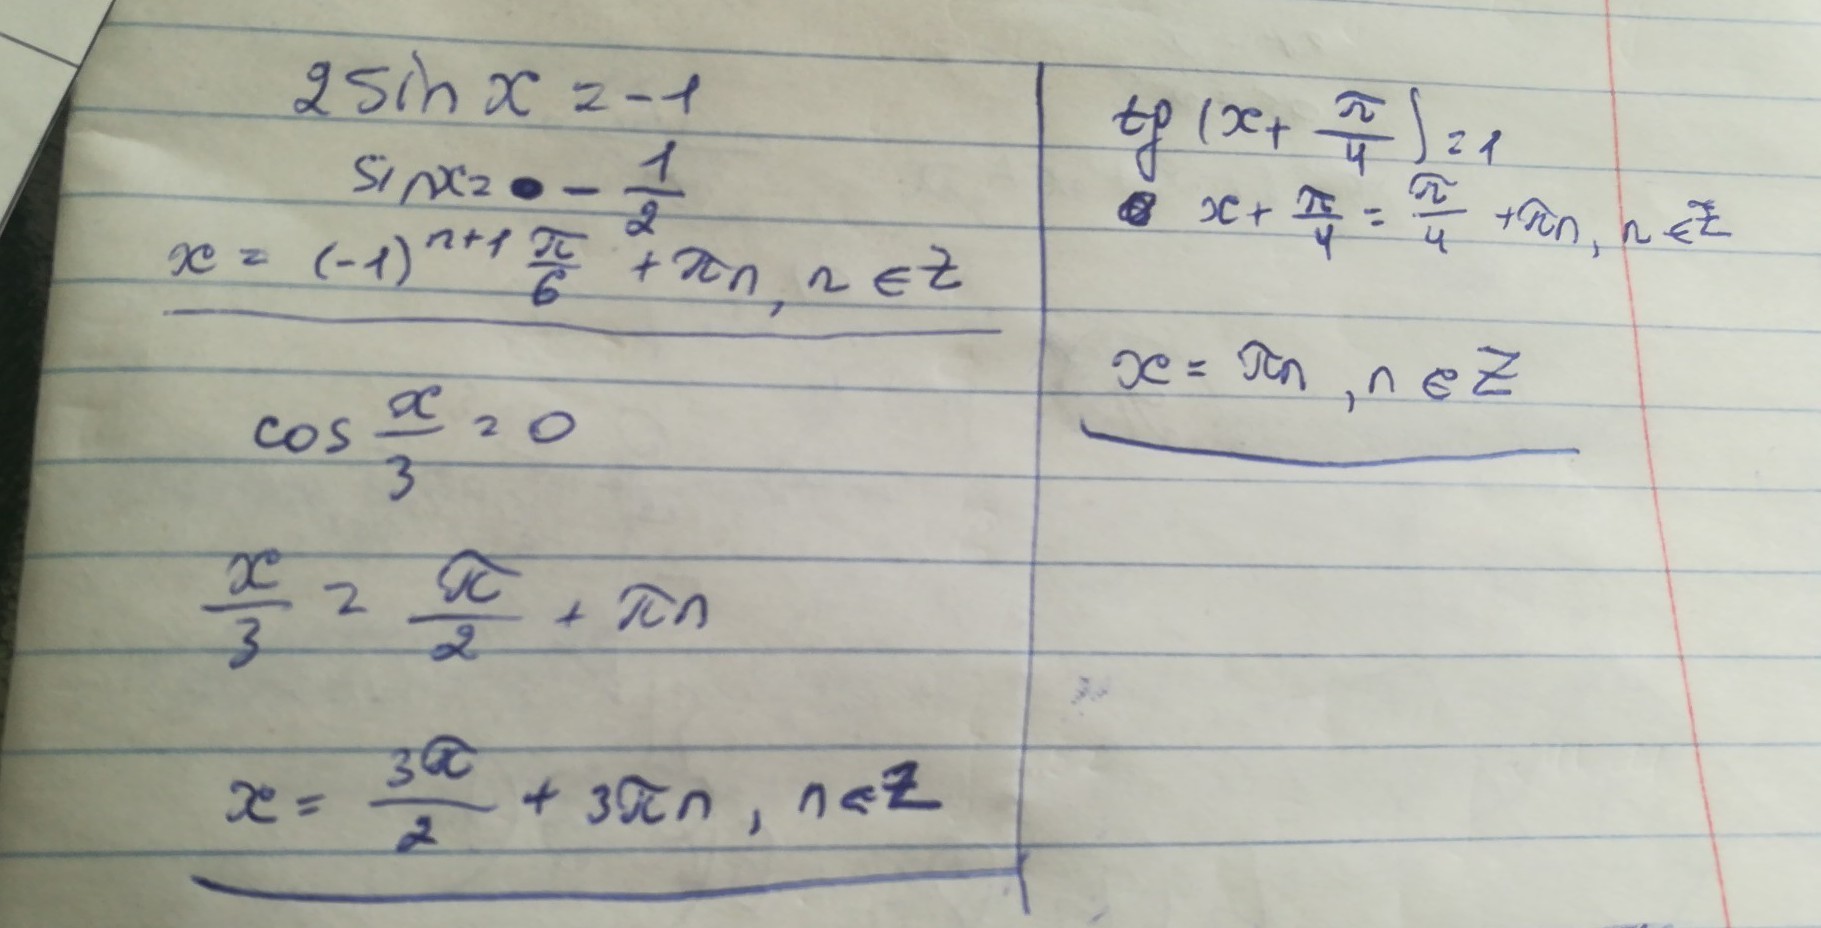 2 sin x = -1
sin x = - 1/2
x = (-1)^(n+1) π/6 + πn, n ∈ Z
cos x/3 = 0
x/3 = π/2 + πn
x = 3π/2 + 3πn, n ∈ Z
tg (x + π/4) = 1
x + π/4 = π/4 + πn, n ∈ Z
x = πn, n ∈ Z